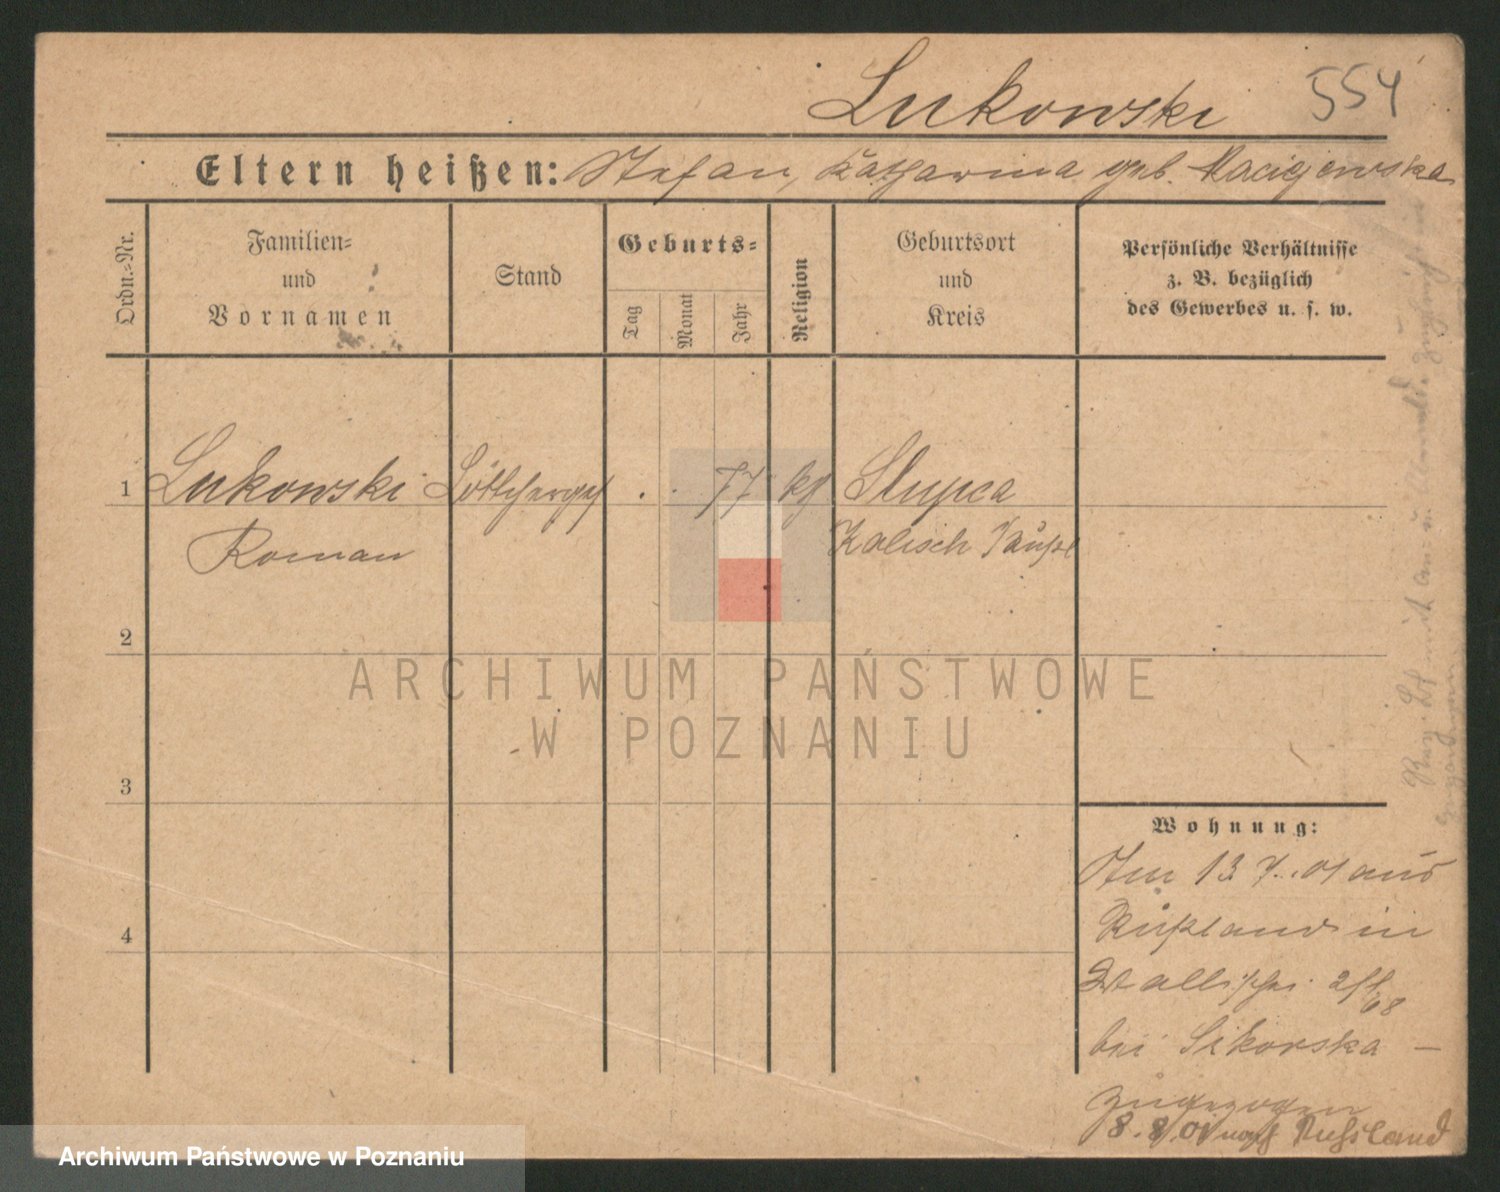 Lukowski 554
Eltern heißen: Stefan, Katharina geb. Maciejewska
Ordn.-Nr.
Familien-
und
Vornamen
Stand
Geburts-
Tag
Monat
Jahr
Religion
Geburtsort
und
Kreis
Persönliche Verhältnisse
z. B. bezüglich
des Gewerbes u. s. w.
1 Lukowski Böttcherges . . 77 kh Slupca
Roman Kalisch Rußl
2
3
4
Wohnung:
Am 13 7. 01 aus
Rußland in
Wallischei
bei Sikorska —
zugezogen
8. 8. 01 nach Russland
ARCHIWUM PAŃSTWOWE
W POZNANIU
Archiwum Państwowe w Poznaniu